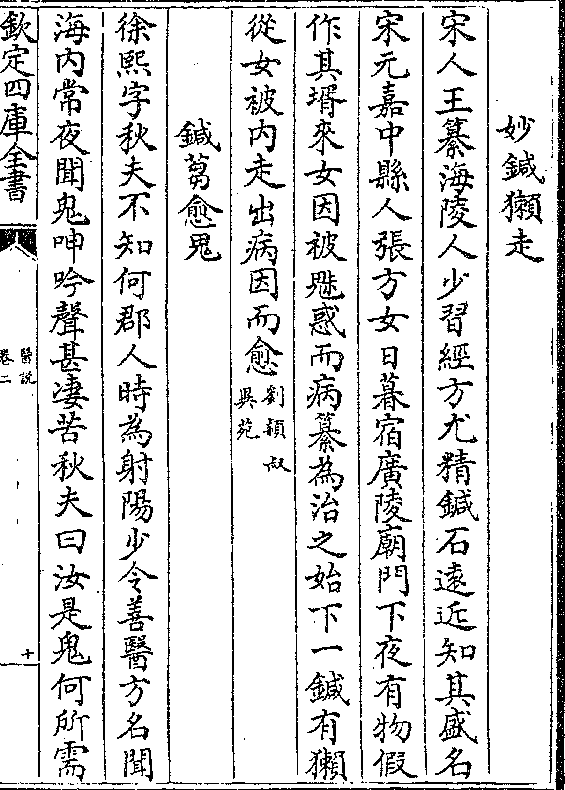 妙鍼獺走
宋人王纂海陵人少習經方尤精鍼石遠近知其盛名
宋元嘉中縣人張方女日暮宿廣陵廟門下夜有物假
作其壻來女因被魅惑而病纂為治之始下一鍼有獺
從女被内走出病因而愈劉頴叔異苑
鍼芻愈鬼
徐熙字秋夫不知何郡人時為射陽少令善醫方名聞
海内常夜聞鬼呻吟聲甚凄苦秋夫曰汝是鬼何所需
欽定四庫全書
醫説
卷二
十